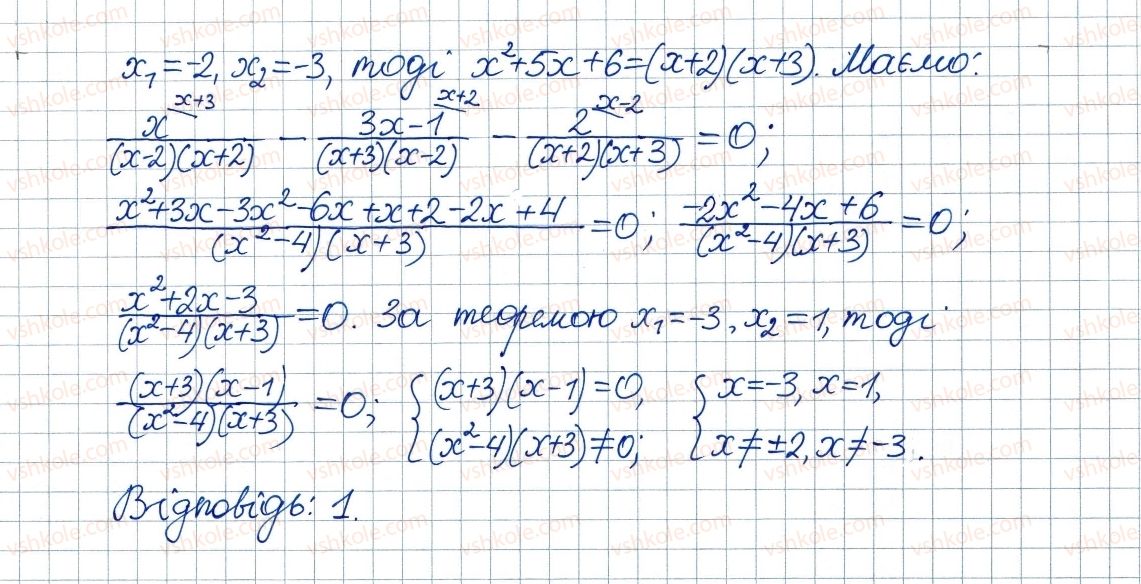 x₁ = -2, x₂ = -3, тоді x² + 5x + 6 = (x+2)(x+3). Маємо:
x^(x+3) / (x-2)(x+2) - 3x-1^(x+2) / (x+3)(x-2) - 2^(x-2) / (x+2)(x+3) = 0;
x²+3x-3x²-6x+x+2-2x+4 / (x²-4)(x+3) = 0; -2x²-4x+6 / (x²-4)(x+3) = 0;
x²+2x-3 / (x²-4)(x+3) = 0. За теоремою x₁ = -3, x₂ = 1, тоді
(x+3)(x-1) / (x²-4)(x+3) = 0; { (x+3)(x-1) = 0, (x²-4)(x+3) ≠ 0; { x = -3, x = 1, x ≠ ±2, x ≠ -3.
Відповідь: 1.